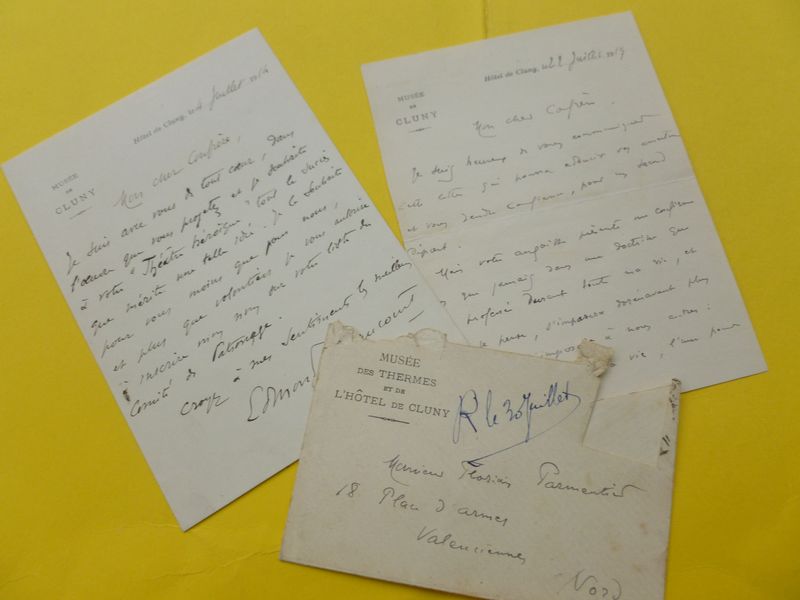 MUSÉE
DE
CLUNY
Hôtel de Cluny, 4 Juillet
Mon cher Confrère,
Je suis avec vous de tout cœur, dans
l'œuvre que vous projetez et je souhaite
à votre "Théâtre héroïque" tout le succès
que mérite une telle idée. Je le souhaite
pour vous moins que pour nous,
et plus que volontiers je vous autorise
à inscrire mon nom sur votre liste du
Comité de Patronage.
Croyez à mes sentiments les meilleurs
Edmond
MUSÉE
DE
CLUNY
Hôtel de Cluny, 22 Juillet
Mon cher Confrère.
Je suis heureux de vous communiquer
cette lettre qui pourra
et vous rendre confiance, pour un second
départ.
Mais votre angoisse présente me confirme
que jamais dans une doctrine que
professée durant toute ma vie, et
je pense, s'imposera désormais plus
à nous autres :
vie, l'une pour
MUSÉE
DES THERMES
ET DE
L'HÔTEL DE CLUNY
R le 30 Juillet
Monsieur Florian Parmentier
18 Place d'armes
Valenciennes
Nord